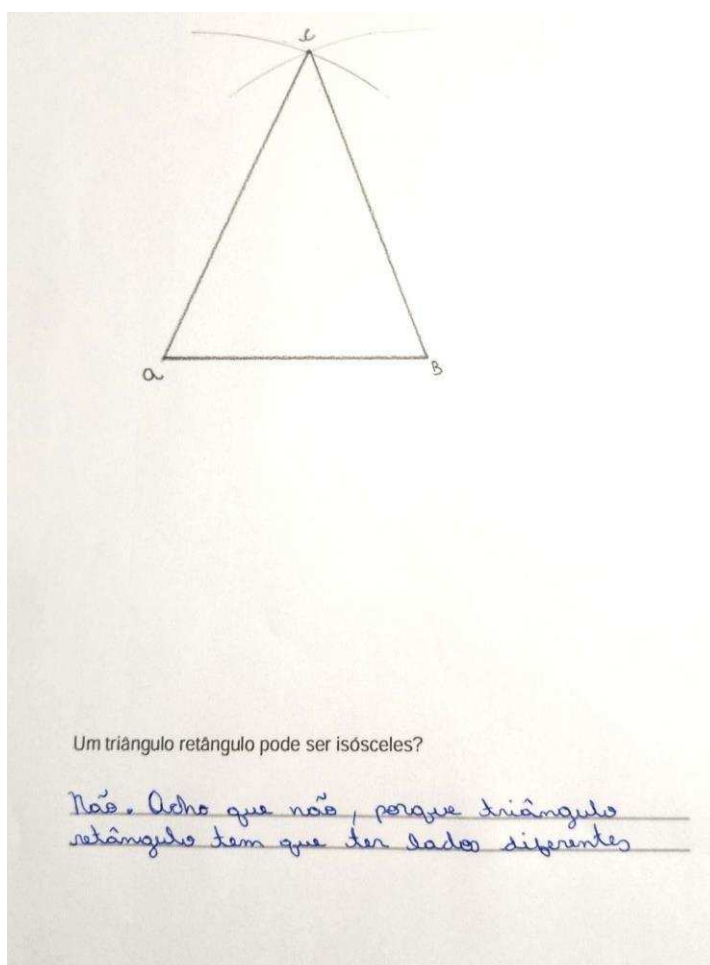 C
a
B
Um triângulo retângulo pode ser isósceles?
Não. Acho que não, porque triângulo
retângulo tem que ter lados diferentes